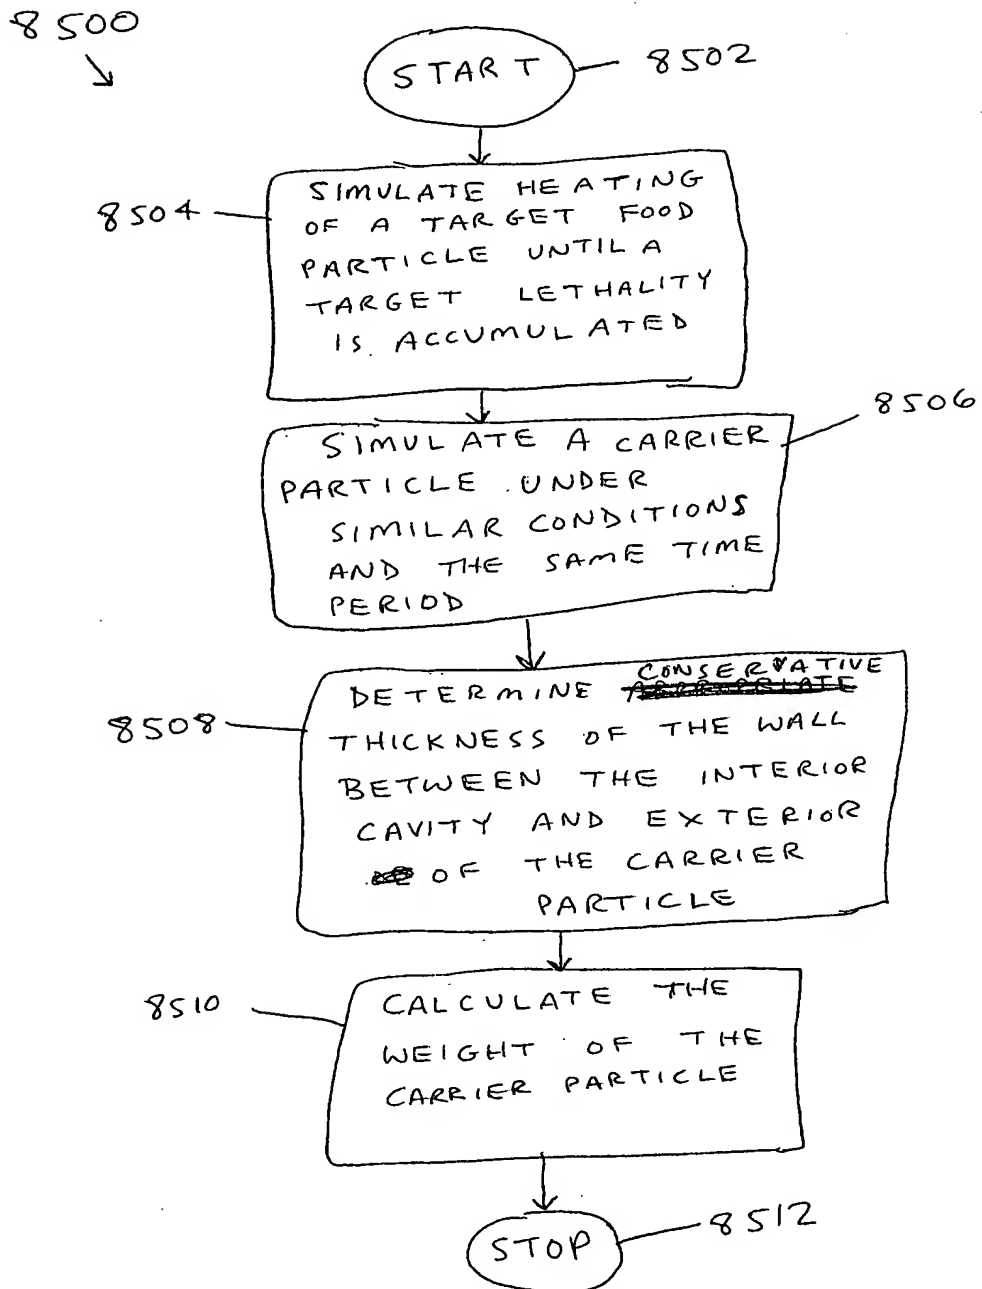 8500
START
8502
8504
SIMULATE HEATING
OF A TARGET FOOD
PARTICLE UNTIL A
TARGET LETHALITY
IS ACCUMULATED
8506
SIMULATE A CARRIER
PARTICLE UNDER
SIMILAR CONDITIONS
AND THE SAME TIME
PERIOD
8508
CONSERVATIVE
DETERMINE
THICKNESS OF THE WALL
BETWEEN THE INTERIOR
CAVITY AND EXTERIOR
OF THE CARRIER
PARTICLE
8510
CALCULATE THE
WEIGHT OF THE
CARRIER PARTICLE
STOP
8512